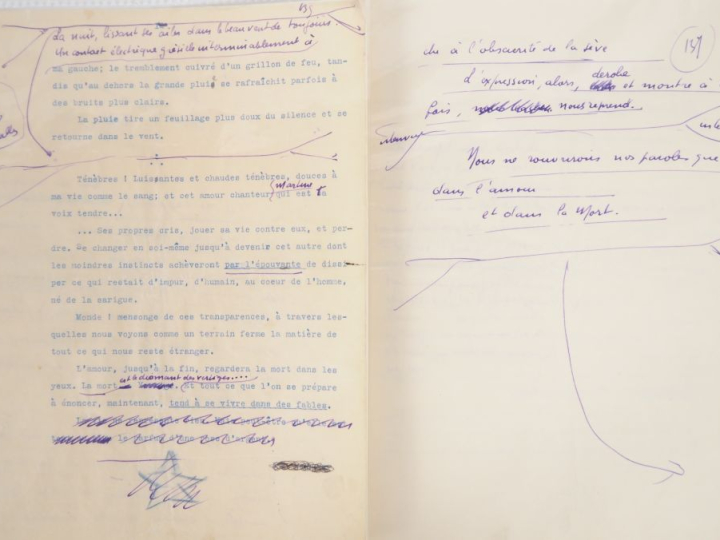 La nuit, lissant ses ailes dans le beau vent de toujours.
Un contact électrique grésille interminablement à
ma gauche; le tremblement cuivré d'un grillon de feu, tan-
dis qu'au dehors la grande pluie se rafraîchit parfois à
des bruits plus clairs.
La pluie tire un feuillage plus doux du silence et se
retourne dans le vent.
Ténèbres ! Luisantes et chaudes ténèbres, douces à
ma vie comme le sang; et cet amour chanteur qui est ta
voix tendre...
... Ses propres cris, jouer sa vie contre eux, et per-
dre. Se changer en soi-même jusqu'à devenir cet autre dont
les moindres instincts achèveront par l'épouvante de dissi-
per ce qui restait d'impur, d'humain, au coeur de l'homme,
né de la sarigue.
Monde ! mensonge de ces transparences, à travers les-
quelles nous voyons comme un terrain ferme la matière de
tout ce qui nous reste étranger.
L'amour, jusqu'à la fin, regardera la mort dans les
yeux. La mort
et tout ce que l'on se prépare
à énoncer, maintenant, tend à se vivre dans des fables.
137
à l'obscurité de la sève
L'expression, alors, dérobe et montre à
fois, nous reprend...
Nous ne trouverons nos paroles que
dans l'amour
et dans la Mort.